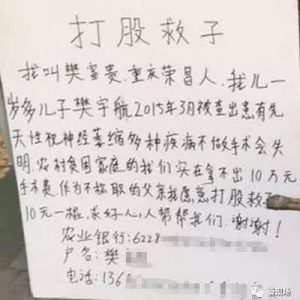 打股救子
我叫樊富贵.重庆荣昌人.我儿一
岁多儿子樊宇航2015年3月被查出患有先
天性视神经萎缩多种疾病不做手术会失
明.农村贫困家庭的我们实在拿不出10万元
手术费.作为不称职的父亲我愿意打股救子
10元一棍.求好心人帮帮我们.谢谢!
农业银行:6228
户名:樊
电话:136
新现场